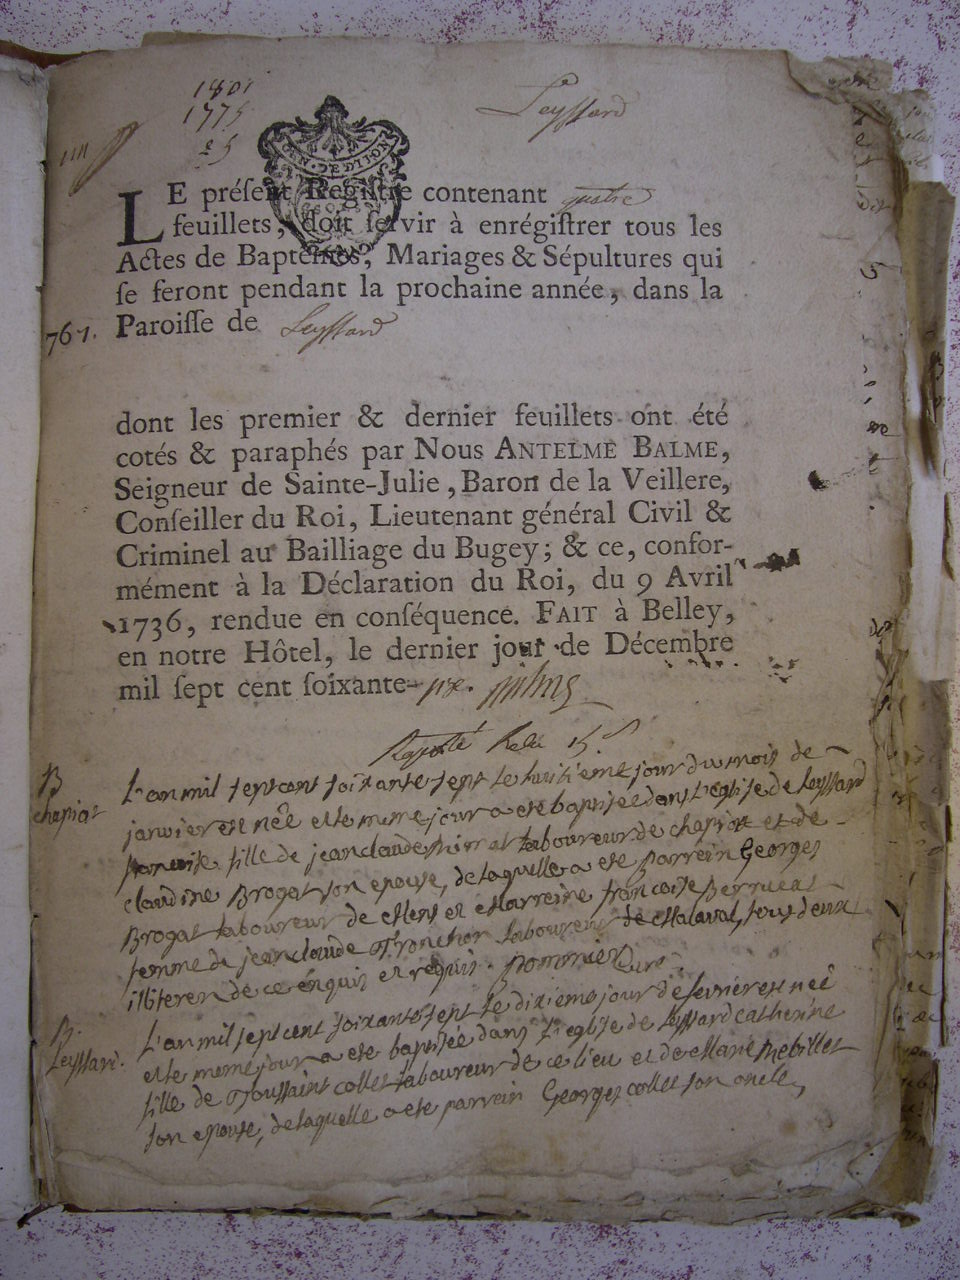 1801
1775
25
Leyssard
GEN. DE DIJON
LE préſent Regiſtre contenant quatre
feuillets, doit ſervir à enrégiſtrer tous les
Actes de Baptêmes, Mariages & Sépultures qui
ſe feront pendant la prochaine année, dans la
767. Paroiſſe de Leyssard
dont les premier & dernier feuillets ont été
cotés & paraphés par Nous ANTELME BALME,
Seigneur de Sainte-Julie, Baron de la Veillere,
Conſeiller du Roi, Lieutenant général Civil &
Criminel au Bailliage du Bugey; & ce, confor-
mément à la Déclaration du Roi, du 9 Avril
1736, rendue en conſéquence. FAIT à Belley,
en notre Hôtel, le dernier jour de Décembre
mil ſept cent ſoixante-six.
B
chapiat
L'an mil sept cent soixante sept le huitieme jour du mois de
janvier est née et le meme jour a eté baptisée dans l'eglise de Leyssard
fille de jean claude laboureur de chapiat et de
claudine Brogat son epouse, de laquelle a eté parrein Georges
Brogat laboureur de et Marreine francoise
femme de jean claude Tronchon laboureur de Malaval, tous deux
illiteren de ce enquis et requis. pommier Curé
B.
Leyssard.
L'an mil sept cent soixante sept le dixieme jour de fevrier est née
et le meme jour a eté baptisée dans l'eglise de Leyssard catherine
fille de Toussaint collet laboureur de ce lieu et de Marie
son epouse, de laquelle a eté parrein Georges collet son oncle,